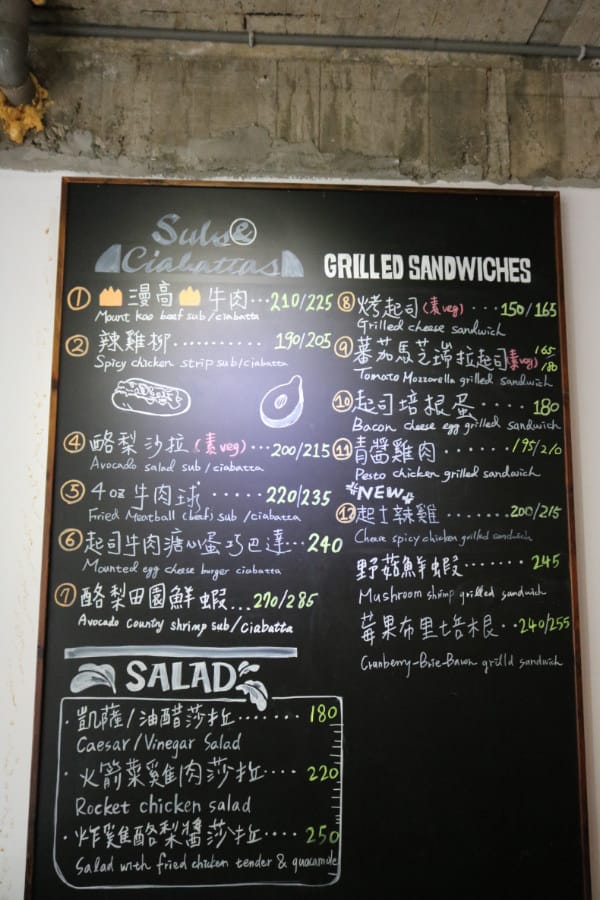 Subs &
Ciabattas
① 漫高 牛肉...210/225
Mount kao beef sub/ciabatta
② 辣雞柳...........190/205
Spicy chicken strip sub/ciabatta
④ 酪梨沙拉(素veg)...200/215
Avocado salad sub/ciabatta
⑤ 4oz牛肉球......220/235
Fried Meatball (beef) sub/ciabatta
⑥ 起司牛肉溏心蛋巧巴達...240
Mounted egg cheese burger ciabatta
⑦ 酪梨田園鮮蝦...270/285
Avocado Country shrimp sub/Ciabatta
SALAD
·凱薩/油醋莎拉.......180
Caesar/Vinegar Salad
·火箭菜雞肉莎拉....220
Rocket chicken salad
·炸雞酪梨醬莎拉....250
Salad with fried chicken tender & guacamole
GRILLED SANDWICHES
⑧ 烤起司(素veg)....150/165
Grilled cheese sandwich
⑨ 蕃茄馬芝瑞拉起司(素veg) 165/180
Tomato Mozzarella grilled sandwich
⑩ 起司培根蛋......180
Bacon cheese egg grilled sandwich
⑪ 青醬雞肉......195/210
Pesto chicken grilled sandwich
NEW
⑫ 起士辣雞......200/215
Cheese spicy chicken grilled sandwich
野菇鮮蝦.......245
Mushroom shrimp grilled sandwich
莓果布里培根..240/255
Cranberry-Brie-Bacon grilld sandwich